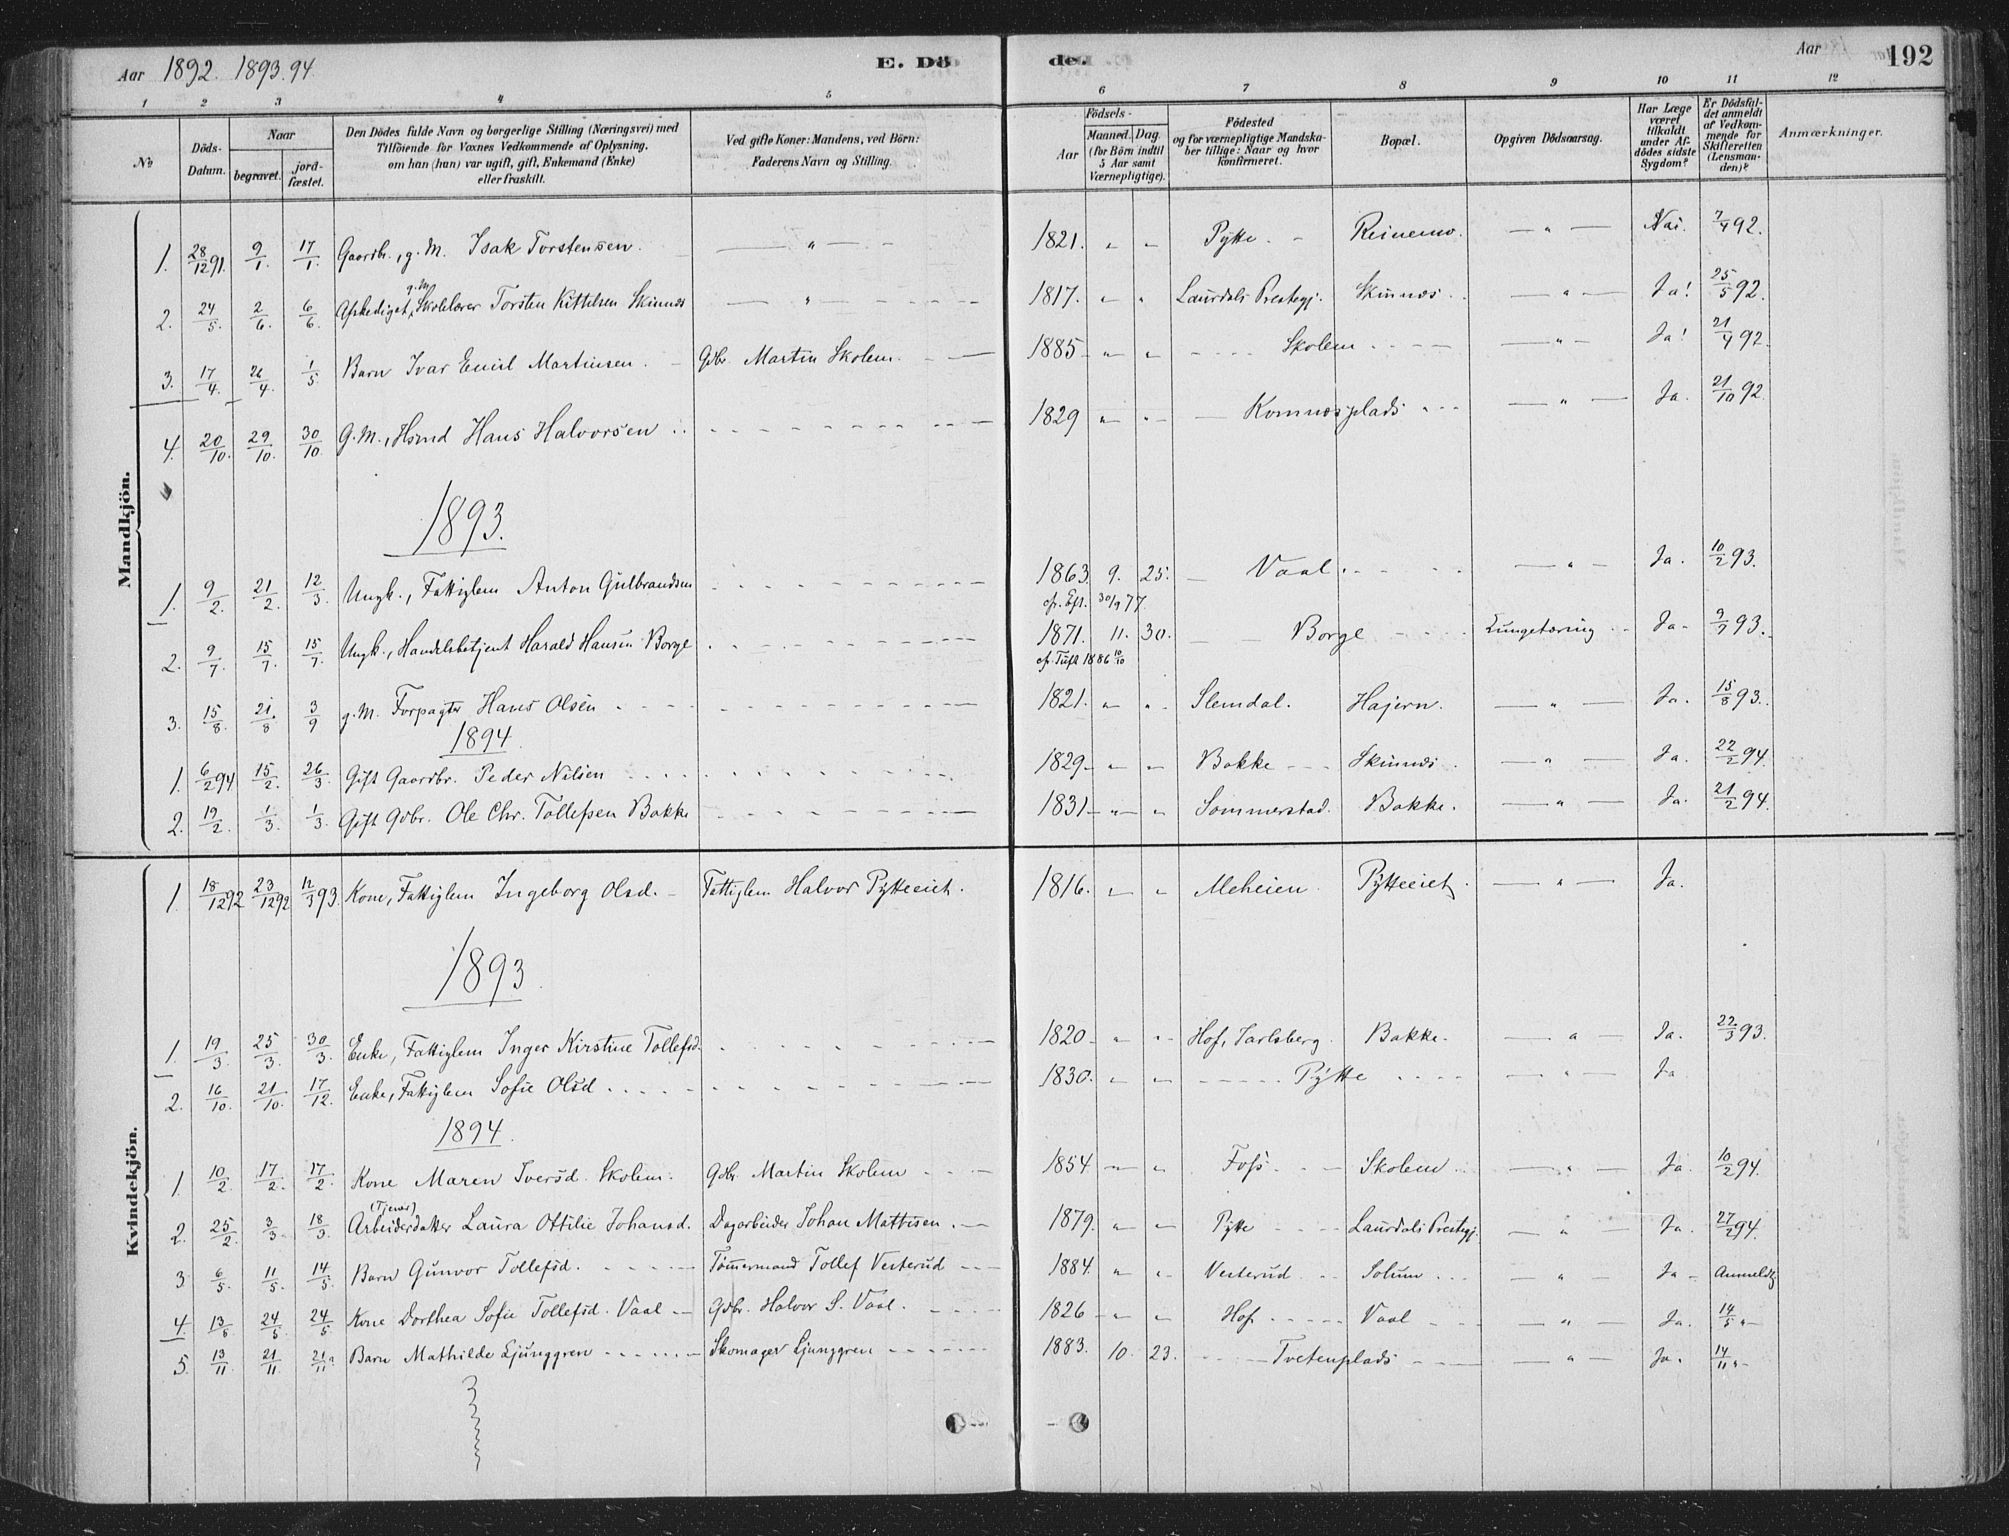 Aar 1892. 1893. 94. E. Dö de. Aar 192
1 2 3 4 5 6 7 8 9 10 11 12
No Döds-Datum. Naar begravet. jord-fæstet. Den Dödes fulde Navn og borgerlige Stilling (Næringsvei) med Tilföiende for Voxnes Vedkommende af Oplysning, om han (hun) var ugift, gift, Enkemand (Enke) eller fraskilt. Ved gifte Koner: Mandens, ved Börn: Faderens Navn og Stilling. Födsels- Aar Maaned. Dag. (for Börn indtil 5 Aar samt Værnepligtige). Födested og for værnepligtige Mandskaber tillige: Naar og hvor konfirmeret. Bopæl. Opgiven Dödsaarsag. Har Læge været tilkaldt under Afdödes sidste Sygdom? Er Dödsfaldet anmeldt af Vedkommende for Skifteretten (Lensmanden)? Anmærkninger.
Mandkjön.
1. 28/12 91. 9/1. 17/1. Gaardbr., g. M. Isak Torstensen. — „ — 1821. „ „ Pytte. Reinemo. — „ — Nei. 7/4 92.
2. 24/5. 2/6. 6/6. Afskediget, g. M. Skolelærer Torsten Kittelsen Skinnes — „ — 1817. „ „ Laurdals Prestegj. Skinnes. — „ — Ja! 25/5 92.
3. 17/4. 26/4. 1/5. Barn Ivar Emil Martinsen. Gdbr. Martin Skolem. 1885 „ „ Skolem — „ — Ja! 21/4 92.
4. 20/10. 29/10. 30/10. G. M., Hsmd Hans Halvorsen 1829 „ „ Komnesplads — „ — Ja. 21/10 92.
1893.
1. 9/2. 21/2. 12/3. Ungk., Fattiglem Anton Gulbrandsen 1863. 9. 25. Vaal. — „ — Ja. 10/2 93.
cf. Eft. 30/9 77.
2. 9/7. 15/7. 15/7. Ungk., Handelsbetjent Harald Hansen Borge 1871. 11. 30. Borge Lungetæring Ja. 9/7 93.
cf. Tuft 1886 10/10
3. 15/8. 21/8. 3/9 g. M. Forpagter Hans Olsen 1821. „ „ Slemdal. Hajern. — „ — Ja. 15/8 93.
1894
1. 6/2 94 15/2. 26/3. Gift Gaardbr. Peder Nilsen 1829 „ „ Bakke Skinnes. — „ — Ja. 22/2 94.
2. 19/2. 1/3. 1/3. Gift Gdbr. Ole Chr. Tollefsen Bakke 1831 „ „ Sommerstad. Bakke. — „ — Ja. 21/2 94.
Kvindekjön.
1. 18/12 92 23/12 92 12/3 93. Kone, Fattiglem Ingeborg Olsd. Fattiglem Halvor Pytteeiet. 1816. „ „ Meheien. Pytteeiet. — „ — Ja.
1893
1. 19/3. 25/3. 30/3. Enke, Fattiglem Inger Kirstine Tollefsd. 1820 „ „ Hof, Jarlsberg. Bakke. — „ — Ja. 22/3 93.
2. 16/10. 21/10. 17/12. Enke, Fattiglem Sofie Olsd 1830. „ „ Pytte — „ — Ja
1894.
1. 10/2. 17/2. 17/2. Kone Maren Iversd. Skolem. Gdbr. Martin Skolem 1854 „ „ Foss Skolem — „ — Ja. 10/2 94.
2. 25/2. 3/3. 18/3. (Tjener) Arbeiderdatter Laura Ottilie Johansd. Dagarbeider Johan Mathisen. 1879. „ „ Pytte Laurdals Prestegj. — „ — Ja. 27/2 94.
3 6/5. 11/5. 14/5. Barn Gunvor Tollefsd. Tömmermand Tollef Vesterud 1884. „ „ Vesterud Solum — „ — Ja Anmeldt
4. 13/5 24/5. 24/5 Kone Dorthea Sofie Tollefsd. Vaal Gdbr. Halvor S. Vaal. 1826 „ „ Hof Vaal — „ — Ja. 14/5 „
5. 13/11 21/11. 21/11. Barn Mathilde Ljunggren Skomager Ljunggren 1883. 10. 23. Tvetenplads — „ — Ja. 14/11 „